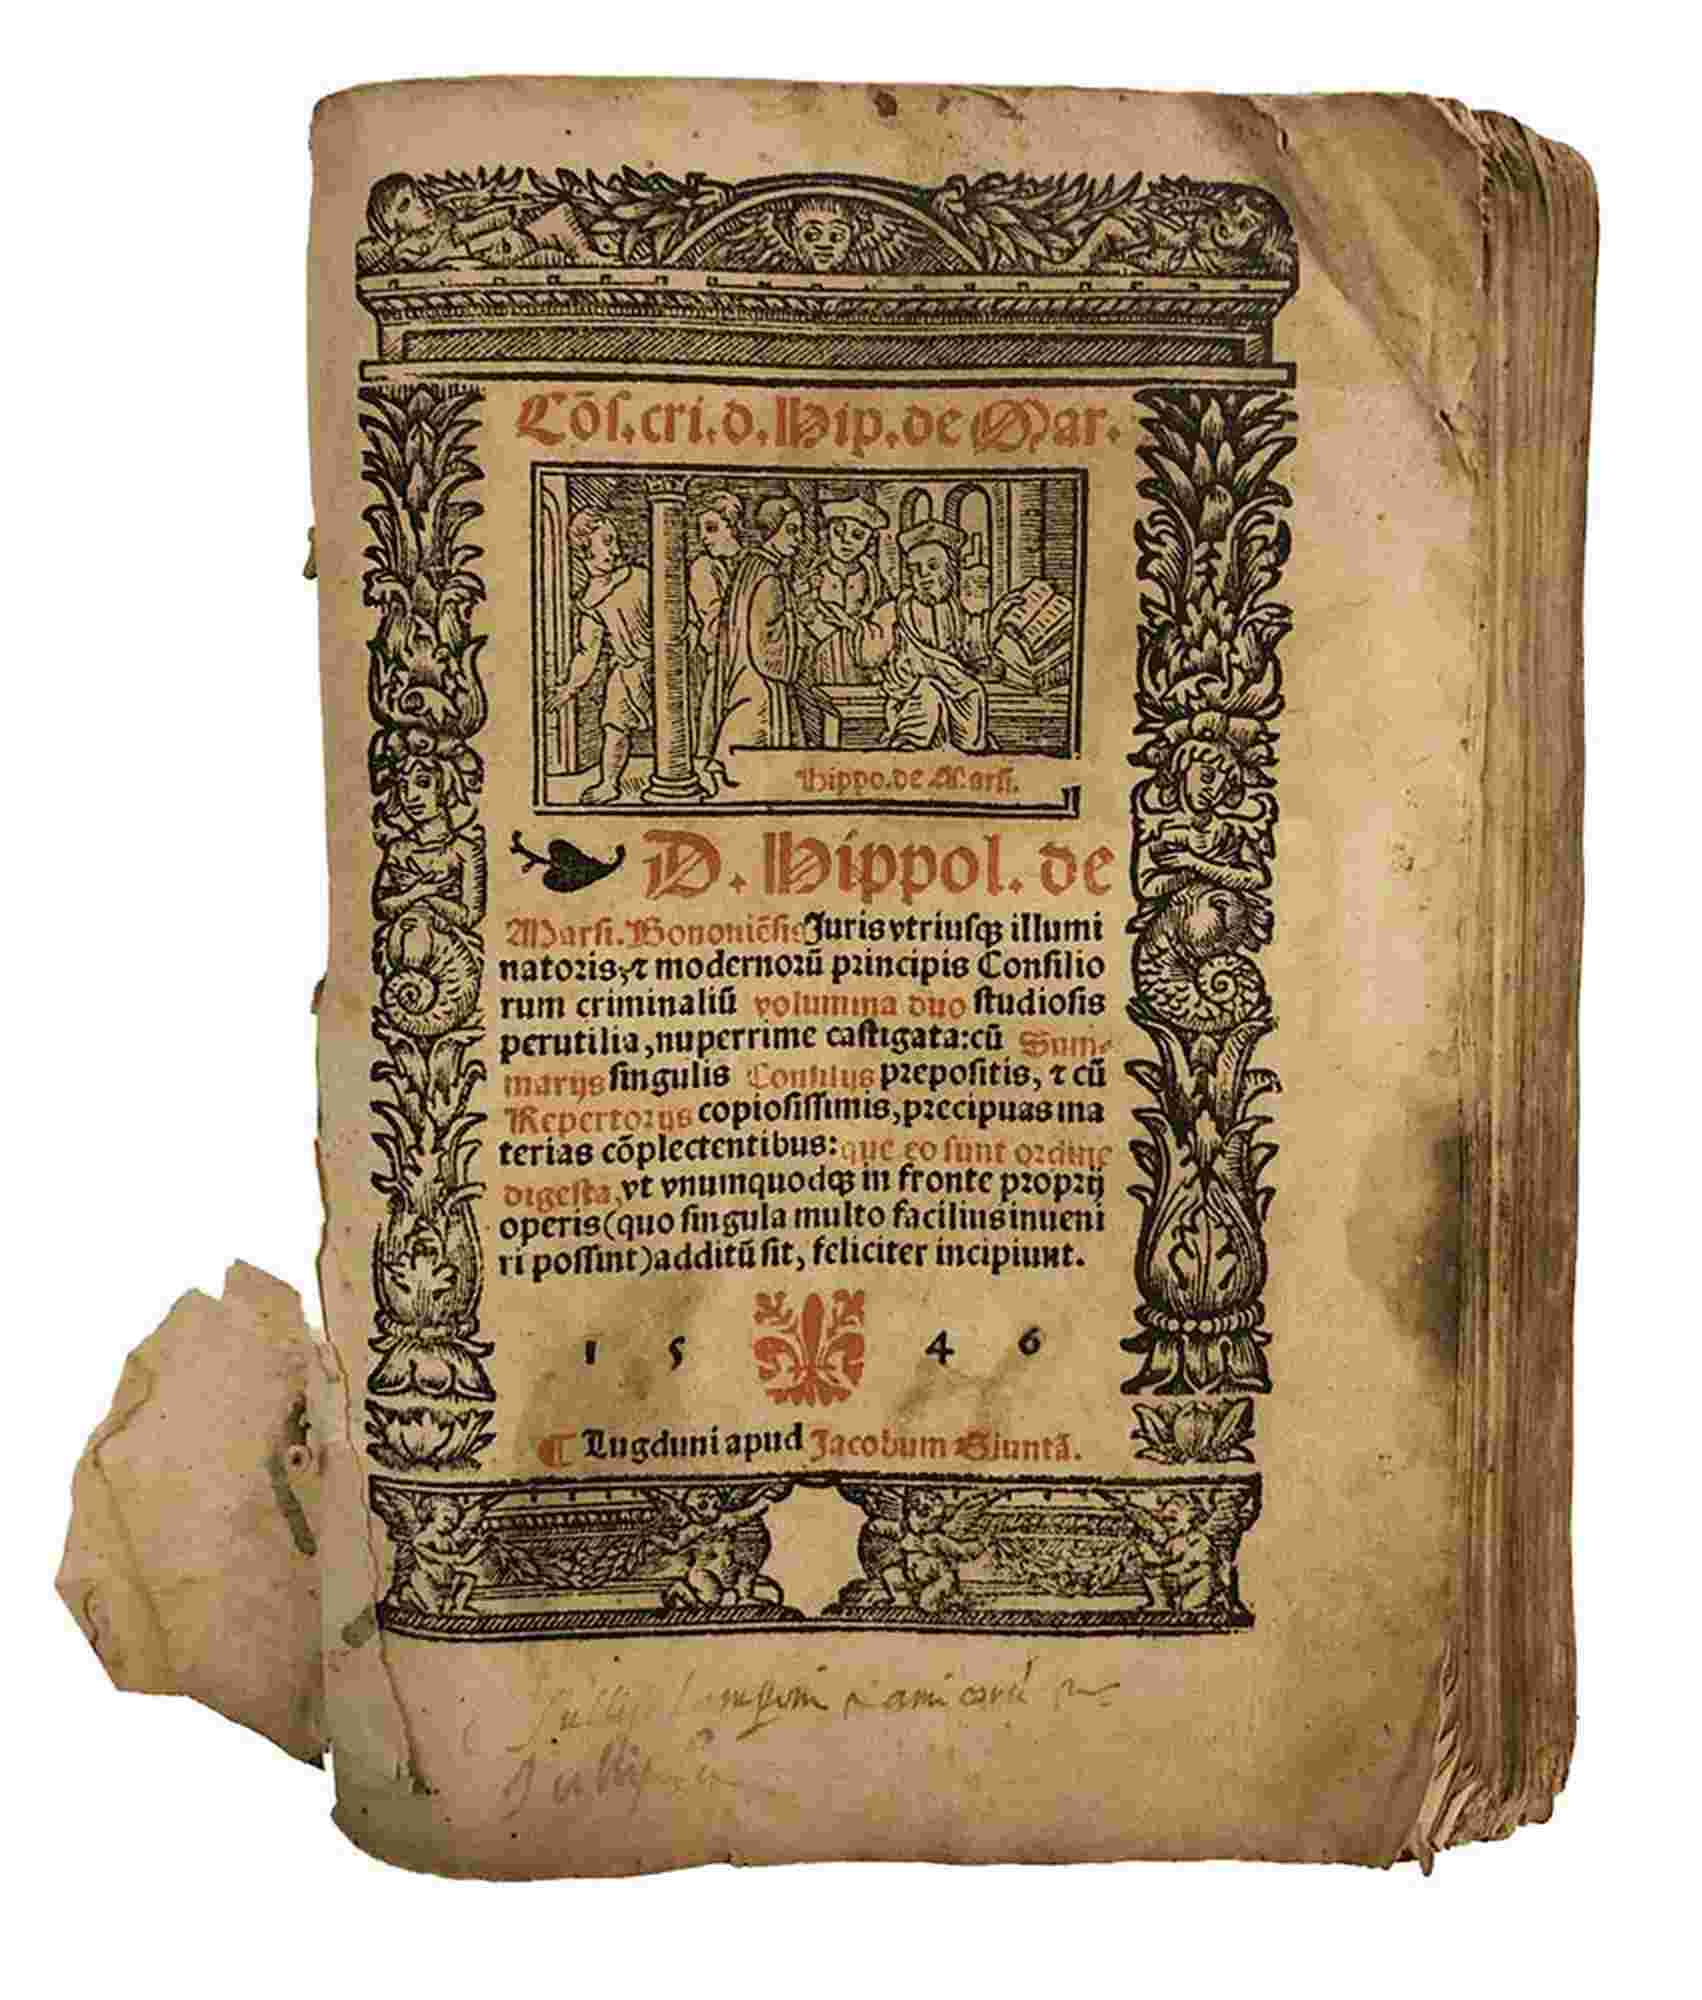 Cõſ.cri.d.Hip.de Mar.
Hippo.de Marſi.
D. Hippol. de
Marſi. Bononiẽſis Juris vtriuſqꝫ illumi
natoꝛis, ⁊ modernoꝛũ pꝛincipis Conſilio
rum criminaliũ volumina duo ſtudioſis
perutilia, nuperrime caſtigata: cũ Sum⸗
marijs ſingulis Conſilijs pꝛepoſitis, ⁊ cũ
Repertoꝛijs copioſiſſimis, pꝛecipuas ma
terias cõplectentibus: que eo ſunt oꝛdine
digeſta, vt vnumquodqꝫ in fronte pꝛopꝛij
operis (quo ſingula multo facilius inueni
ri poſſint) additũ ſit, feliciter incipiunt.
1 5 4 6
¶ Lugduni apud Jacobum Giuntã.